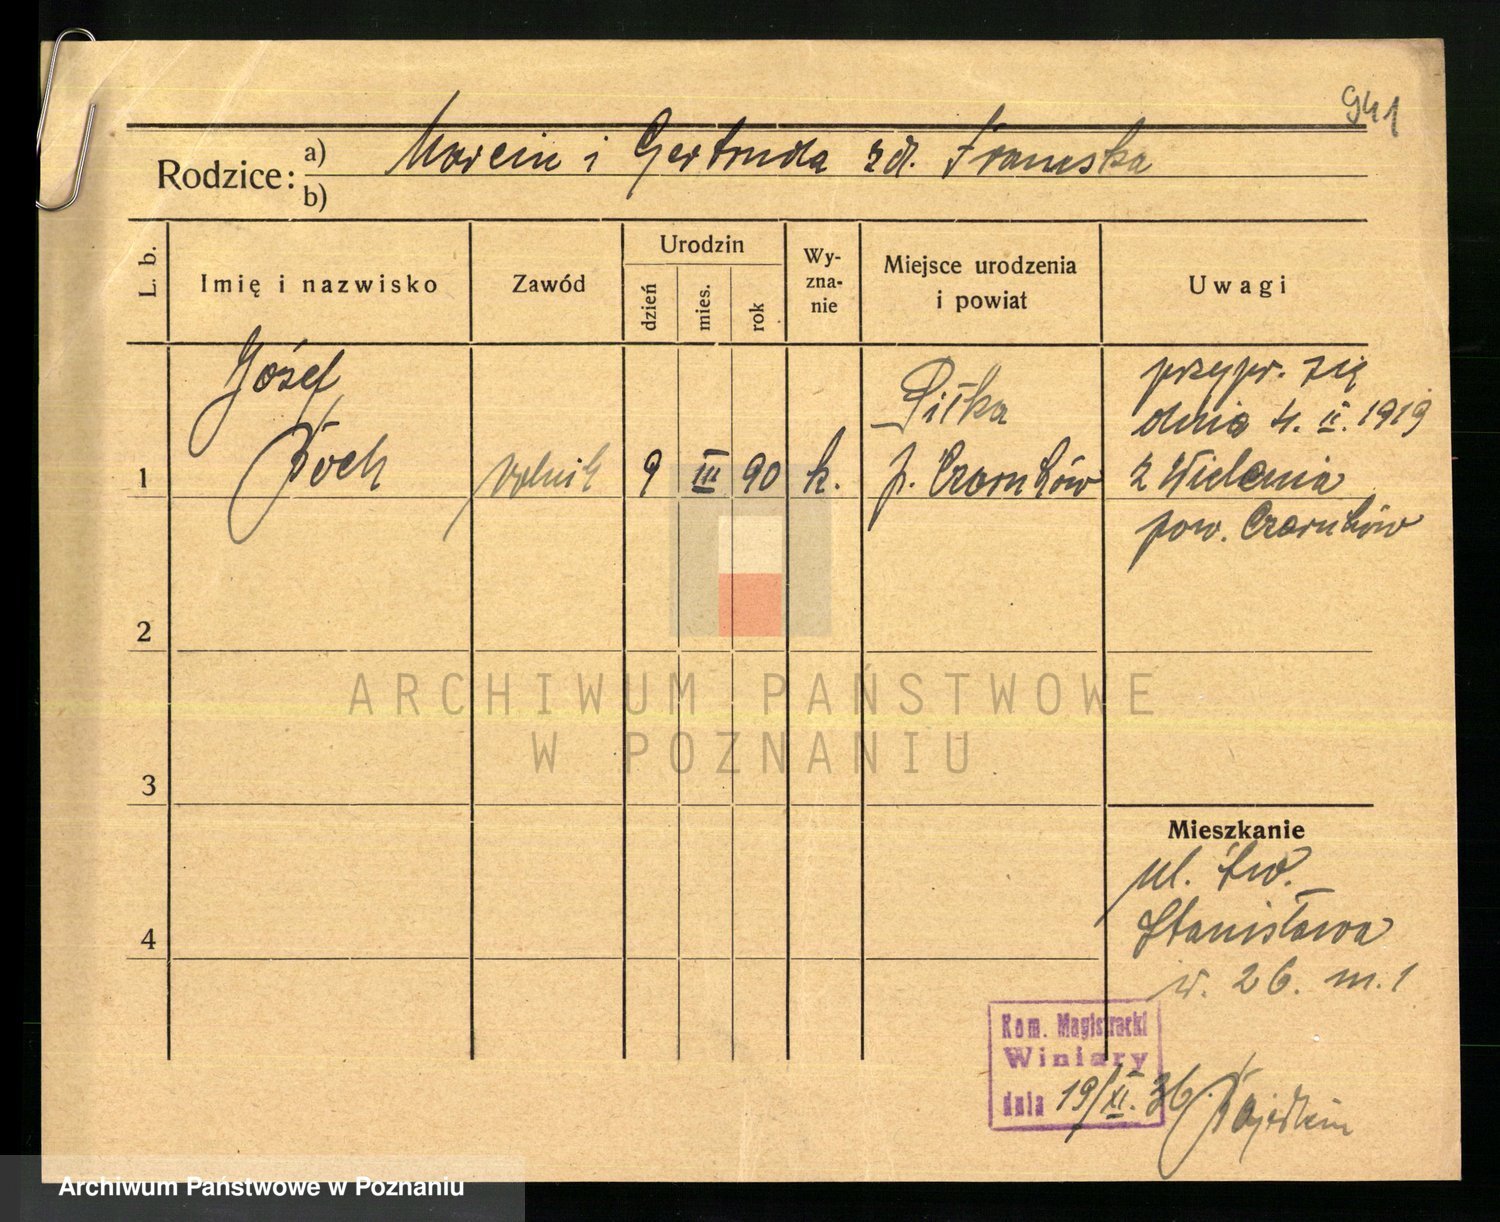 941
Rodzice: a) Marcin i Gertruda zd. Franeska
b)
L. b. Imię i nazwisko Zawód Urodzin dzień mies. rok Wy-zna-nie Miejsce urodzenia i powiat Uwagi
Józef
1 rolnik 9 III 90 k.
Piłka
p. Czarnków
przypr. się
dnia 4. II. 1919
z Wielenia
pow. Czarnków
2
3
4
ARCHIWUM PAŃSTWOWE
W POZNANIU
Mieszkanie
ul. Św.
Stanisława
26. m. 1
Kom. Magistracki
Winiary
dnia 19/XI. 36.
Archiwum Państwowe w Poznaniu